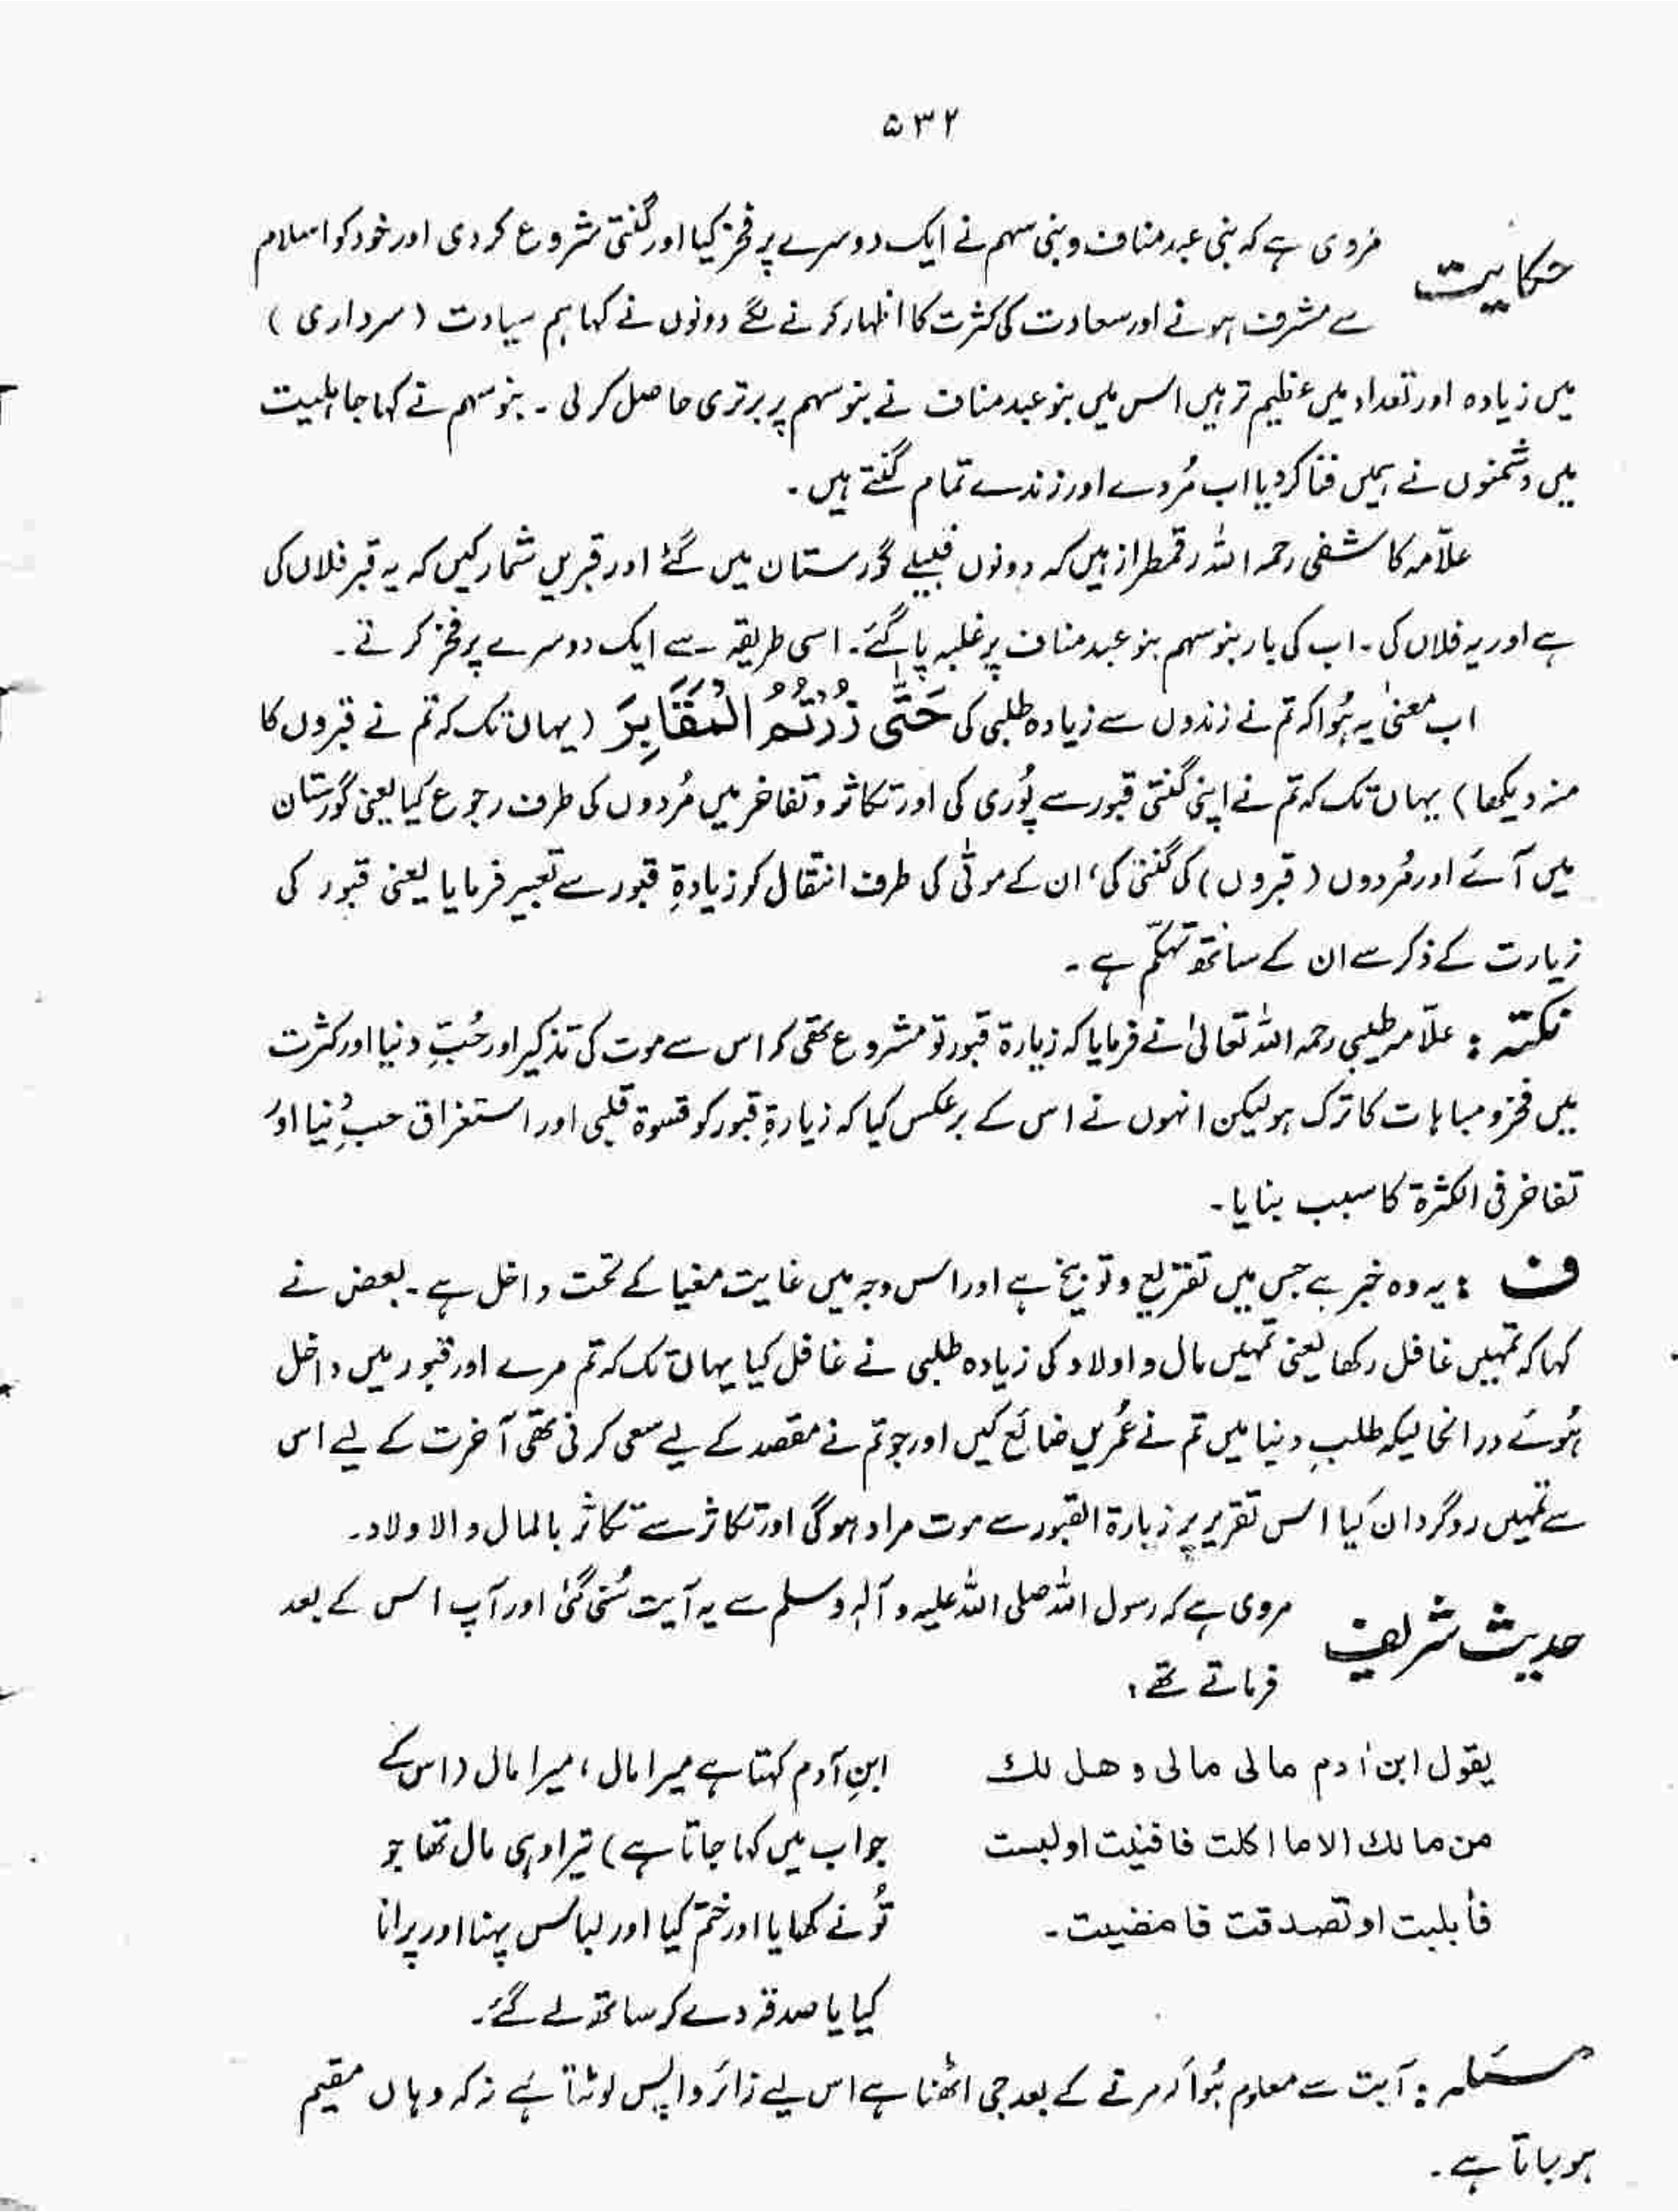 ۵۳۲
حکایت
مروی ہے کہ بنی عبد مناف و بنی سہم نے ایک دوسرے پر فخر کیا اور گنتی شروع کر دی اور خود کو اسلام
سے مشرف ہونے اور سعادت کی کثرت کا اظہار کرنے لگے دونوں نے کہا ہم سیادت (سرداری)
میں زیادہ اور تعداد میں عظیم تر ہیں اس میں بنو عبد مناف نے بنو سہم پر برتری حاصل کر لی ۔ بنو سہم نے کہا جاہلیت
میں دشمنوں نے ہمیں فنا کر دیا اب مُردے اور زندے تمام گنتے ہیں ۔
علّامہ کاشفی رحمہ اللہ رقمطراز ہیں کہ دونوں قبیلے گورستان میں گئے اور قبریں شمار کیں کہ یہ قبر فلاں کی
ہے اور یہ فلاں کی ۔ اب کی بار بنو سہم بنو عبد مناف پر غلبہ پا گئے ۔ اسی طریقہ سے ایک دوسرے پر فخر کرتے ۔
اب معنیٰ یہ ہُوا کہ تم نے زندوں سے زیادہ طلبی کی حَتّٰی زُرْتُمُ الْمَقَابِرَ (یہاں تک کہ تم نے قبروں کا
منہ دیکھا) یہاں تک کہ تم نے اپنی گنتی قبور سے پُوری کی اور تکاثر و تفاخر میں مُردوں کی طرف رجوع کیا یعنی گورستان
میں آئے اور مُردوں (قبروں) کی گنتی کی، ان کے موتٰی کی طرف انتقال کو زیادۃِ قبور سے تعبیر فرمایا یعنی قبور کی
زیارت کے ذکر سے ان کے ساتھ تہکّم ہے ۔
نکتہ : علّامہ طیبی رحمہ اللہ تعالیٰ نے فرمایا کہ زیارۃ قبور تو مشروع تھی کہ اس سے موت کی تذکیر اور حُبِّ دنیا اور کثرت
میں فخر و مباہات کا ترک ہو لیکن انہوں نے اس کے برعکس کیا کہ زیارۃِ قبور کو قسوۃ قلبی اور استغراق حبِ دُنیا اور
تفاخر فی الکثرۃ کا سبب بنایا ۔
ف : یہ وہ خبر ہے جس میں تقریع و توبیخ ہے اور اس وجہ میں غایت مغیا کے تحت داخل ہے ۔ بعض نے
کہا کہ تمہیں غافل رکھا یعنی تمہیں مال و اولاد کی زیادہ طلبی نے غافل کیا یہاں تک کہ تم مرے اور قبور میں داخل
ہُوئے در انحالیکہ طلبِ دنیا میں تم نے عُمریں ضائع کیں اور جو تم نے مقصد کے لیے سعی کرنی تھی آخرت کے لیے اس
سے تمہیں روگردان کیا اس تقریر پر زیارۃ القبور سے موت مراد ہوگی اور تکاثر سے تکاثر بالمال والاولاد ۔
حدیث شریف
مروی ہے کہ رسول اللہ صلی اللہ علیہ و آلہٖ وسلم سے یہ آیت سُنی گئی اور آپ اس کے بعد
فرماتے تھے :
یقول ابن اٰدم مالی مالی وھل لك
من مالك الا ما اکلت فافنیت اولبست
فأبلیت اوتصدقت فامضیت ۔
ابنِ آدم کہتا ہے میرا مال، میرا مال (اس کے
جواب میں کہا جاتا ہے) تیرا وہی مال تھا جو
تُو نے کھایا اور ختم کیا اور لباس پہنا اور پرانا
کیا یا صدقہ دے کر ساتھ لے گئے ۔
مسئلہ : آیت سے معلوم ہُوا کہ مرنے کے بعد جی اٹھنا ہے اس لیے زائر واپس لوٹتا ہے نہ کہ وہاں مقیم
ہو جاتا ہے ۔